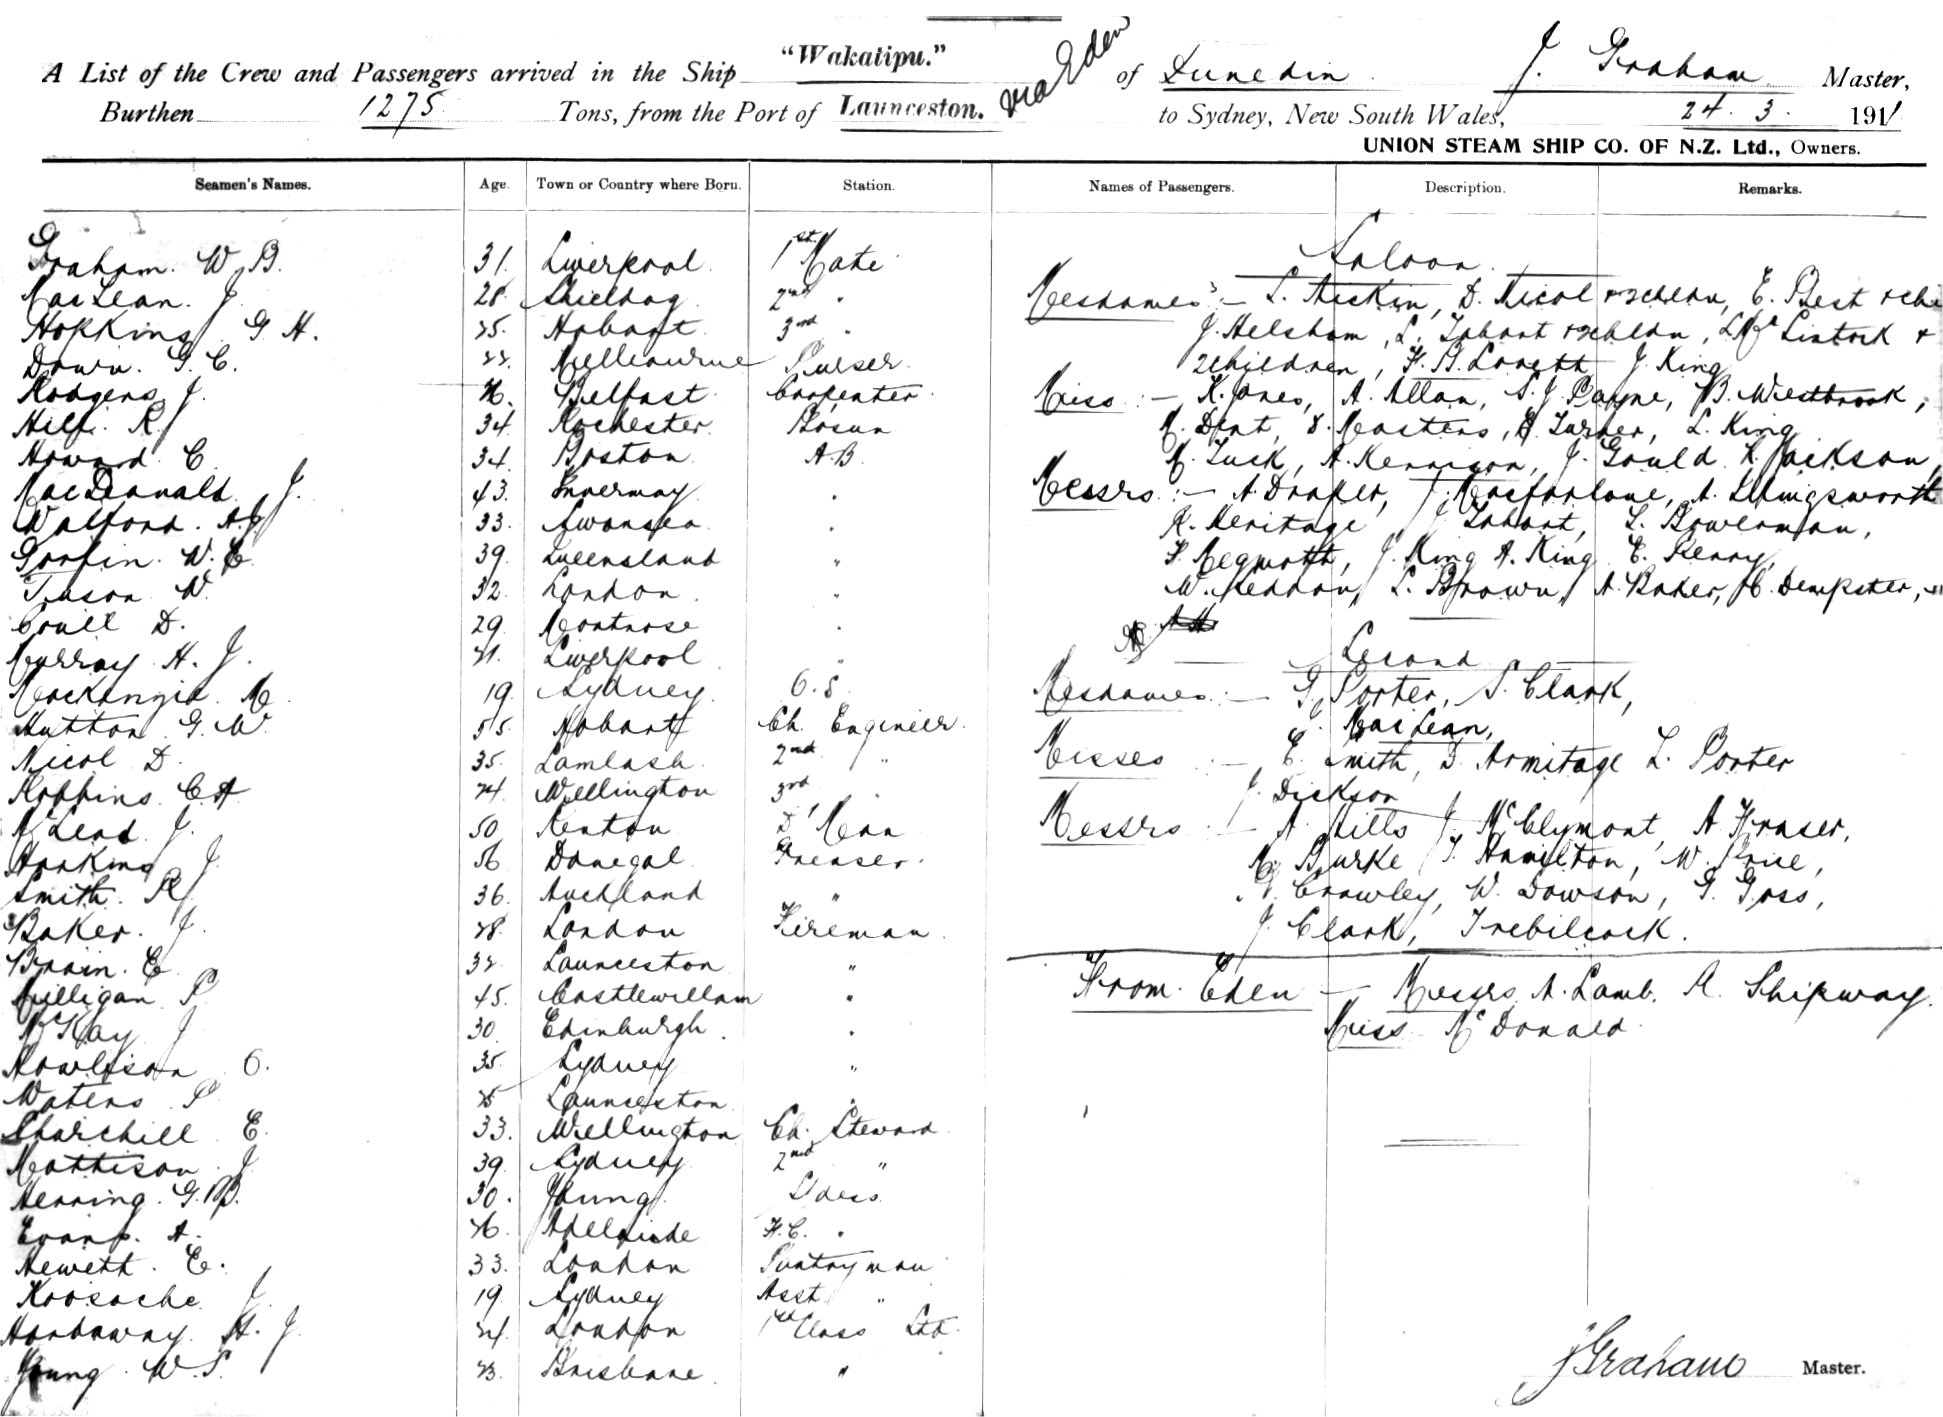 "Wakatipu."
A List of the Crew and Passengers arrived in the Ship via Eden of Dunedin J. Graham Master,
Burthen 1275 Tons, from the Port of Launceston. to Sydney, New South Wales, 24. 3. 1911
UNION STEAM SHIP CO. OF N.Z. Ltd., Owners.
Seamen's Names. Age. Town or Country where Born. Station. Names of Passengers. Description. Remarks.
Graham. W. B. 31. Liverpool. 1st Mate
MacLean. J. 28. Shieldag 2nd "
Hopkins G. H. 25. Hobart 3rd "
Down. G. C. 22. Melbourne Purser.
Rodgers J. 26. Belfast Carpenter
Hill. R. 34 Rochester. Bosun
Howard. C. 34. Boston A.B.
MacDonald J. 43. "
Walford. A. J. 33. Swansea "
Gorfin. W. E. 39. Queensland "
Tuson W. 32. London "
Coull D. 29. Montrose "
Murray H. J. 21. Liverpool "
MacKenzie. M. 19. Sydney. O.S.
Hutton G. W. 55. Hobart Ch. Engineer.
Nicol D. 35. Lamlash. 2nd "
Robbins C. A. 24. Wellington 3rd "
McLeod J. 50 Renton D. Man
Hoskins J. 56 Donegal Greaser.
Smith. R. 36. Auckland "
Baker. J. 28. London Fireman
Brain. E. 32. Launceston "
Milligan P. 45. Castlewellam "
McKay J. 30 Edinburgh "
Rowlison O. 35. Sydney "
Waters P. 25 Launceston "
Churchill E. 33. Wellington Ch. Steward
Mattison J. 39. Sydney 2nd "
Herring. G. B. 30. Young S'dess
Evans. A. 26. Adelaide F.C. "
Hewett. E. 33. London Pantryman
J. 19. Sydney Asst "
Hardaway H. J. 24. London 1st Class Std.
Young. W. S. 23. Brisbane "
Saloon.
Mesdames :- L. Aiskin, D. Nicol & 2chldn, E. Best & chi
J. Helsham, L. Tabart & 2chldn, L. McLintock &
2children, F. B. Lovett J. King
Miss :- K. Jones, A. Allan, S. J. Payne, B. Westbrook,
M. Dent, S. Masters, A. Turner, L. King
M. Tuck, A. Kennison, J. Gould K. Jackson,
Messrs :- A. Draper, J. Macfarlane, A. Illingsworth
R. Heritage J. Tabart, L. Bowerman,
F. Megwott, J. King A. King E. Kenny,
W. L. Brown, A. Baker, C. Dempster,
Second
Mesdames :- G. Porter, S. Clark,
MacLean,
Misses :- E. Smith, D. Armitage L. Porter
J. Dickson
Messrs :- A. Mills J. McClymont, A. Fraser,
M. Burke T. Hamilton, W. Price,
A. Crawley, W. Dowson, G. Goss,
J. Clark, Trebilcock.
From Eden - Messrs A. Lamb. A. Shipway.
Miss McDonald
J Graham Master.